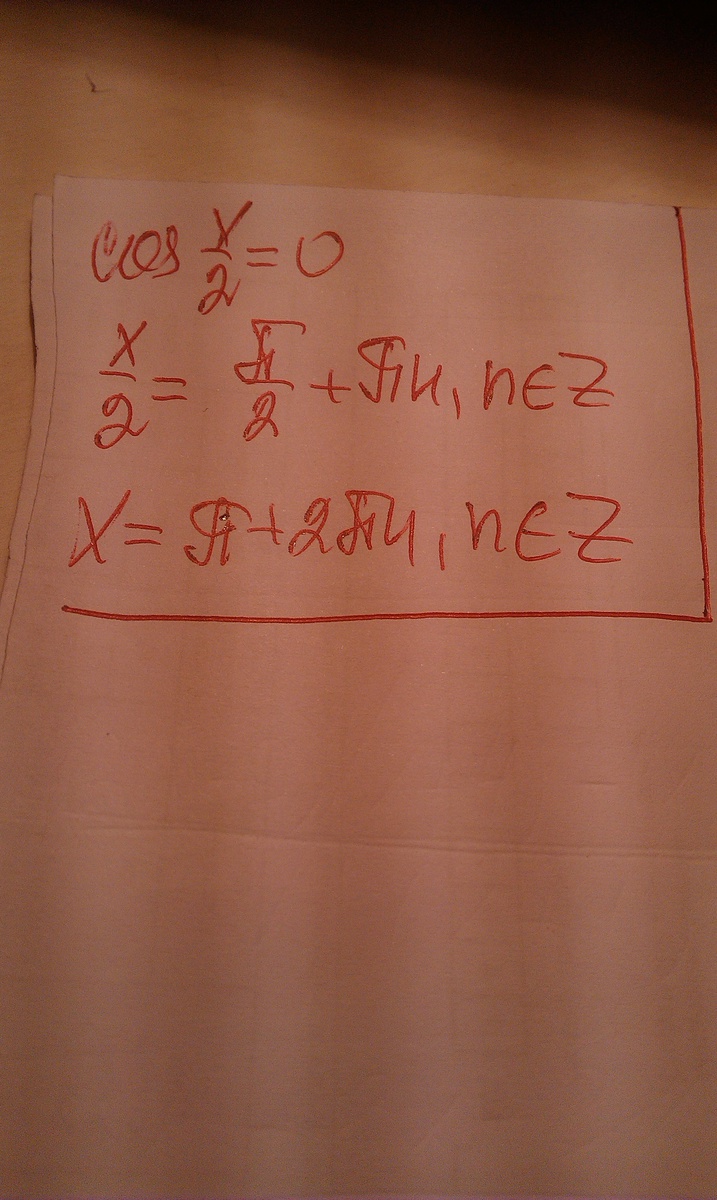 cos x/2 = 0
x/2 = π/2 + πn, n∈Z
x = π + 2πn, n∈Z